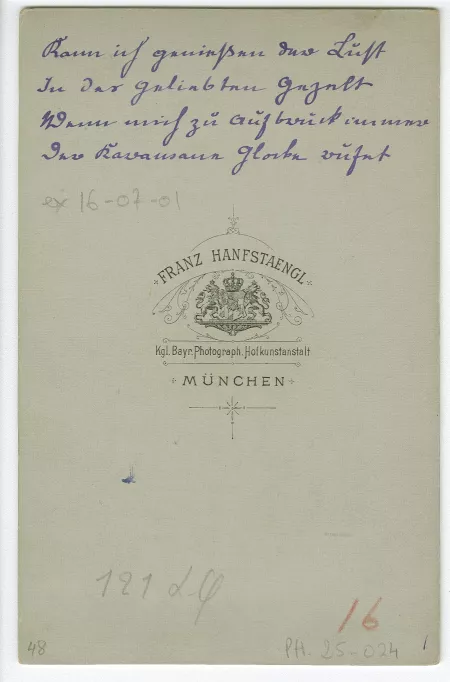 Kann ich genießen der Lust
In der geliebten Gezelt
Wenn mich zu Aufbruck immer
Der Karawane Glocke rufet
16-07-01
FRANZ HANFSTAENGL
Kgl. Bayr. Photograph. Hofkunstanstalt
MÜNCHEN
121
16
48
PH. 25-024